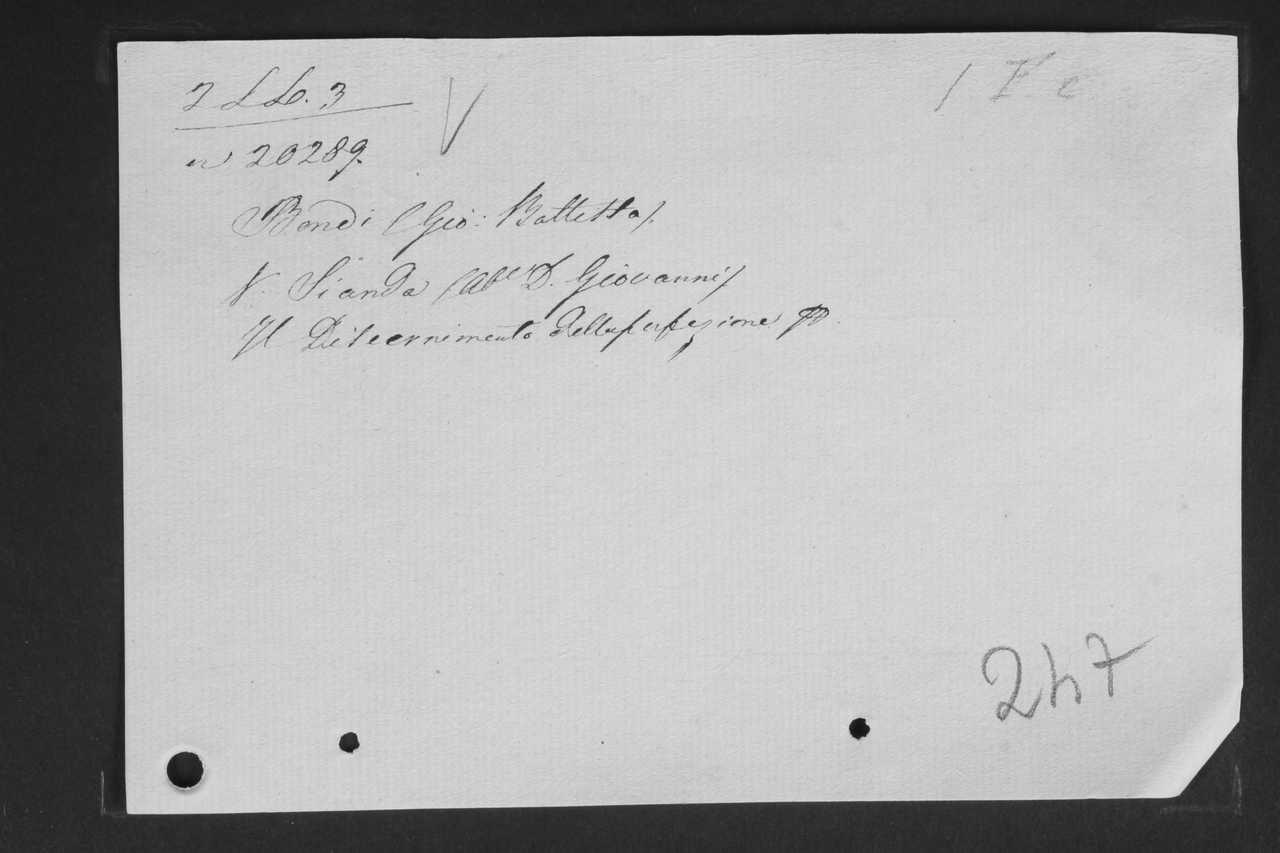 2 L Lb. 3
n 20289.
Bondi (Gio: Battetta).
V. Sianda (Abe D. Giovanni)
Il Discernimento della perfezione
247